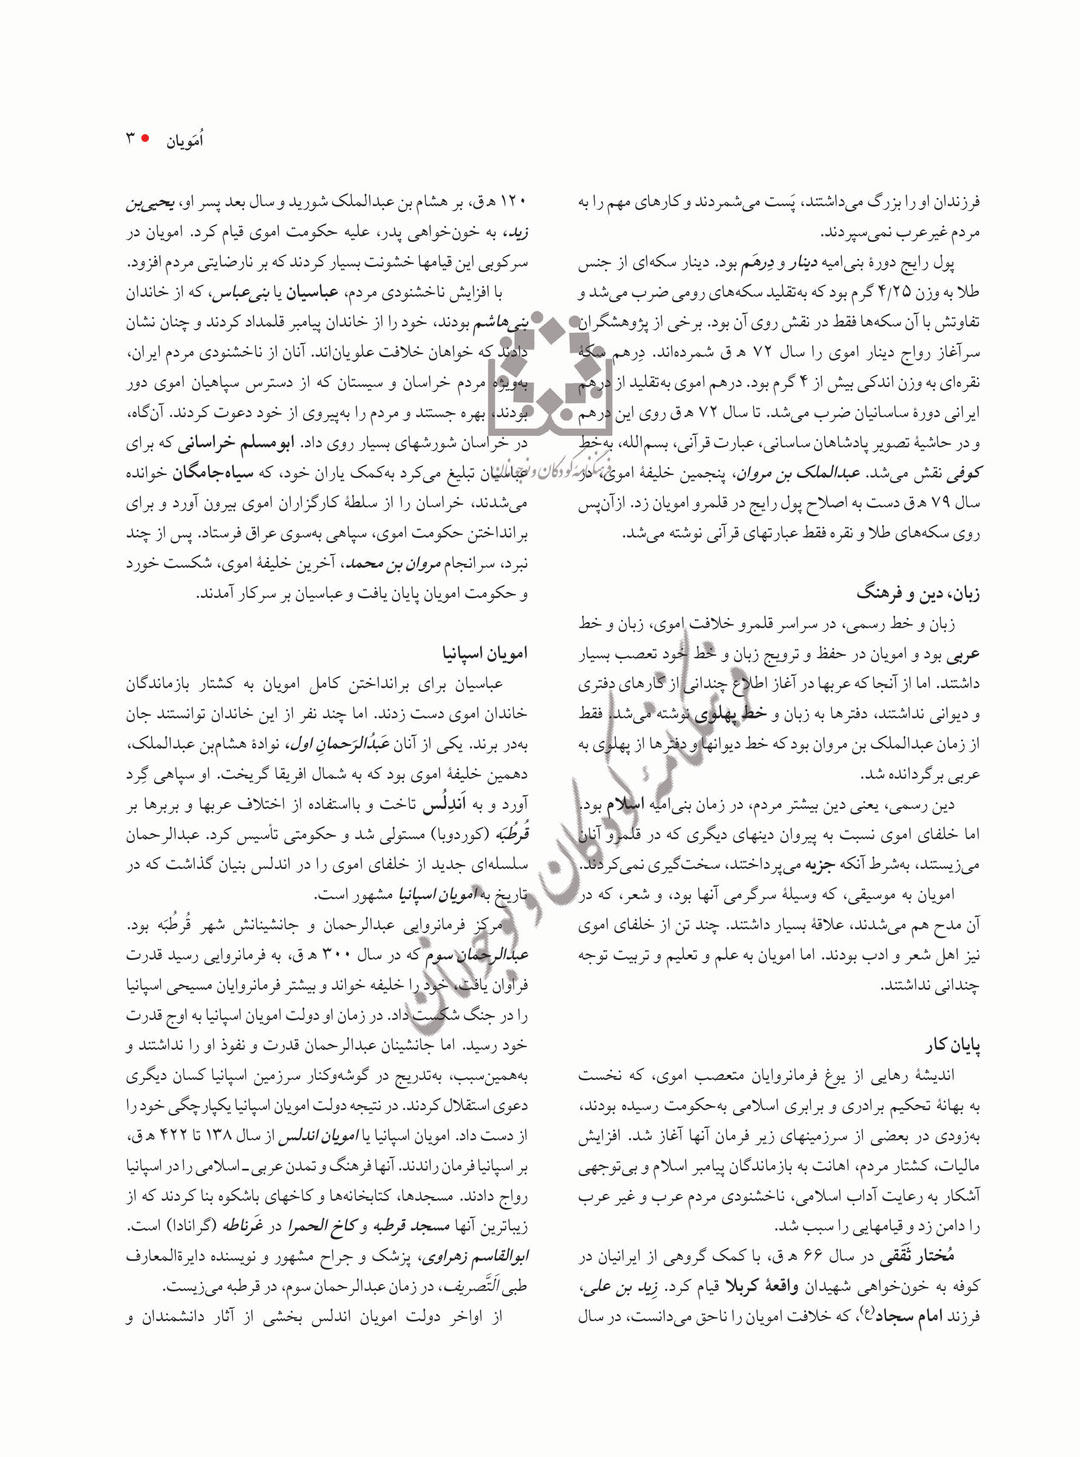 اُمَویان • ۳
فرزندان او را بزرگ می‌داشتند، پَست می‌شمردند و کارهای مهم را به
مردم غیرعرب نمی‌سپردند.
پول رایج دورهٔ بنی‌امیه دینار و دِرهَم بود. دینار سکه‌ای از جنس
طلا به وزن ۴/۲۵ گرم بود که به‌تقلید سکه‌های رومی ضرب می‌شد و
تفاوتش با آن سکه‌ها فقط در نقش روی آن بود. برخی از پژوهشگران
سرآغاز رواج دینار اموی را سال ۷۲ ه‍ ق شمرده‌اند. دِرهم سکهٔ
نقره‌ای به وزن اندکی بیش از ۴ گرم بود. درهم اموی به‌تقلید از درهم
ایرانی دورهٔ ساسانیان ضرب می‌شد. تا سال ۷۲ ه‍ ق روی این درهم
و در حاشیهٔ تصویر پادشاهان ساسانی، عبارت قرآنی، بسم‌الله، به‌خط
کوفی نقش می‌شد. عبدالملک بن مروان، پنجمین خلیفهٔ اموی، در
سال ۷۹ ه‍ ق دست به اصلاح پول رایج در قلمرو امویان زد. ازآن‌پس
روی سکه‌های طلا و نقره فقط عبارتهای قرآنی نوشته می‌شد.
زبان، دین و فرهنگ
زبان و خط رسمی، در سراسر قلمرو خلافت اموی، زبان و خط
عربی بود و امویان در حفظ و ترویج زبان و خط خود تعصب بسیار
داشتند. اما از آنجا که عربها در آغاز اطلاع چندانی از کارهای دفتری
و دیوانی نداشتند، دفترها به زبان و خط پهلوی نوشته می‌شد. فقط
از زمان عبدالملک بن مروان بود که خط دیوانها و دفترها از پهلوی به
عربی برگردانده شد.
دین رسمی، یعنی دین بیشتر مردم، در زمان بنی‌امیه اسلام بود.
اما خلفای اموی نسبت به پیروان دینهای دیگری که در قلمرو آنان
می‌زیستند، به‌شرط آنکه جزیه می‌پرداختند، سخت‌گیری نمی‌کردند.
امویان به موسیقی، که وسیلهٔ سرگرمی آنها بود، و شعر، که در
آن مدح هم می‌شدند، علاقهٔ بسیار داشتند. چند تن از خلفای اموی
نیز اهل شعر و ادب بودند. اما امویان به علم و تعلیم و تربیت توجه
چندانی نداشتند.
پایان کار
اندیشهٔ رهایی از یوغ فرمانروایان متعصب اموی، که نخست
به بهانهٔ تحکیم برادری و برابری اسلامی به‌حکومت رسیده بودند،
به‌زودی در بعضی از سرزمینهای زیر فرمان آنها آغاز شد. افزایش
مالیات، کشتار مردم، اهانت به بازماندگان پیامبر اسلام و بی‌توجهی
آشکار به رعایت آداب اسلامی، ناخشنودی مردم عرب و غیر عرب
را دامن زد و قیامهایی را سبب شد.
مُختار ثَقَفی در سال ۶۶ ه‍ ق، با کمک گروهی از ایرانیان در
کوفه به خون‌خواهی شهیدان واقعهٔ کربلا قیام کرد. زِید بن علی،
فرزند امام سجاد(ع)، که خلافت امویان را ناحق می‌دانست، در سال
۱۲۰ ه‍ ق، بر هشام بن عبدالملک شورید و سال بعد پسر او، یحیی‌بن
زید، به خون‌خواهی پدر، علیه حکومت اموی قیام کرد. امویان در
سرکوبی این قیامها خشونت بسیار کردند که بر نارضایتی مردم افزود.
با افزایش ناخشنودی مردم، عباسیان یا بنی‌عباس، که از خاندان
بنی‌هاشم بودند، خود را از خاندان پیامبر قلمداد کردند و چنان نشان
دادند که خواهان خلافت علویان‌اند. آنان از ناخشنودی مردم ایران،
به‌ویژه مردم خراسان و سیستان که از دسترس سپاهیان اموی دور
بودند، بهره جستند و مردم را به‌پیروی از خود دعوت کردند. آن‌گاه،
در خراسان شورشهای بسیار روی داد. ابومسلم خراسانی که برای
عباسیان تبلیغ می‌کرد به‌کمک یاران خود، که سیاه‌جامگان خوانده
می‌شدند، خراسان را از سلطهٔ کارگزاران اموی بیرون آورد و برای
برانداختن حکومت اموی، سپاهی به‌سوی عراق فرستاد. پس از چند
نبرد، سرانجام مروان بن محمد، آخرین خلیفهٔ اموی، شکست خورد
و حکومت امویان پایان یافت و عباسیان بر سرکار آمدند.
امویان اسپانیا
عباسیان برای برانداختن کامل امویان به کشتار بازماندگان
خاندان اموی دست زدند. اما چند نفر از این خاندان توانستند جان
به‌در برند. یکی از آنان عَبدُالرَحمانِ اول، نوادهٔ هشام‌بن عبدالملک،
دهمین خلیفهٔ اموی بود که به شمال افریقا گریخت. او سپاهی گِرد
آورد و به اَندِلُس تاخت و بااستفاده از اختلاف عربها و بربرها بر
قُرطُبَه (کوردوبا) مستولی شد و حکومتی تأسیس کرد. عبدالرحمان
سلسله‌ای جدید از خلفای اموی را در اندلس بنیان گذاشت که در
تاریخ به امویان اسپانیا مشهور است.
مرکز فرمانروایی عبدالرحمان و جانشینانش شهر قُرطُبَه بود.
عبدالرحمان سوم که در سال ۳۰۰ ه‍ ق، به فرمانروایی رسید قدرت
فراوان یافت، خود را خلیفه خواند و بیشتر فرمانروایان مسیحی اسپانیا
را در جنگ شکست داد. در زمان او دولت امویان اسپانیا به اوج قدرت
خود رسید. اما جانشینان عبدالرحمان قدرت و نفوذ او را نداشتند و
به‌همین‌سبب، به‌تدریج در گوشه‌وکنار سرزمین اسپانیا کسان دیگری
دعوی استقلال کردند. در نتیجه دولت امویان اسپانیا یکپارچگی خود را
از دست داد. امویان اسپانیا یا امویان اندلس از سال ۱۳۸ تا ۴۲۲ ه‍ ق،
بر اسپانیا فرمان راندند. آنها فرهنگ و تمدن عربی ـ اسلامی را در اسپانیا
رواج دادند. مسجدها، کتابخانه‌ها و کاخهای باشکوه بنا کردند که از
زیباترین آنها مسجد قرطبه و کاخ الحمرا در غَرناطه (گرانادا) است.
ابوالقاسم زهراوی، پزشک و جراح مشهور و نویسنده دایرةالمعارف
طبی اَلتَّصریف، در زمان عبدالرحمان سوم، در قرطبه می‌زیست.
از اواخر دولت امویان اندلس بخشی از آثار دانشمندان و
فرهنگنامهٔ کودکان و نوجوانان
فرهنگنامهٔ کودکان و نوجوانان